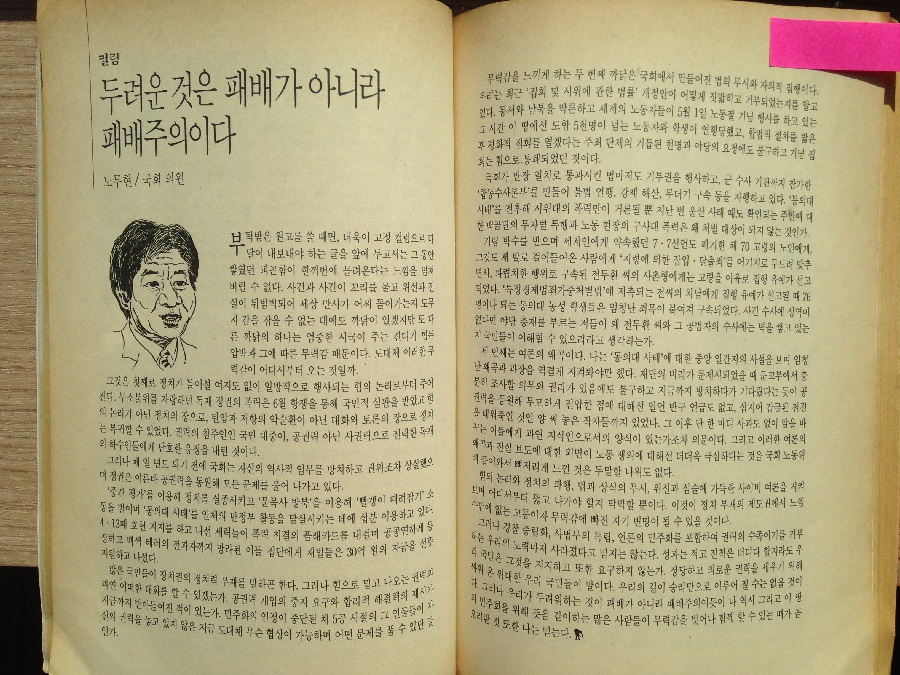 컬럼
두려운 것은 패배가 아니라
패배주의이다
노무현 / 국회 의원
부탁받은 원고를 쓸 때면, 더욱이 고정 컬럼으로 매
달이 내보내야 하는 글을 앞에 두고서는 그 동안
쌓였던 피곤함이 한꺼번에 몰려온다는 느낌을 떨쳐
버릴 수 없다. 사건과 사건이 꼬리를 물고 위선과 진
실이 뒤범벅되어 세상 만사가 어찌 돌아가는지 도무
지 감을 잡을 수 없는 데에도 까닭이 있겠지만 또 다
른 까닭의 하나는 엄중한 시국이 주는 견디기 힘든
압박과 그에 따른 무력감 때문이다. 도대체 이러한 무
력감이 어디서부터 오는 것일까.
그것은 첫째로 정치가 들어설 여지도 없이 일방적으로 행사되는 힘의 논리로부터 주어
진다. 무소불위를 자랑하던 독재 정권의 폭력은 6월 항쟁을 통해 국민적 심판을 받았고 힘
의 논리가 아닌 정치의 장으로, 탄압과 저항의 악순환이 아닌 대화와 토론의 장으로 정치
는 복귀할 수 있었다. 권력의 참주인인 국민 대중이, 공권력 아닌 사권력으로 전락한 독재
의 하수인들에게 단호한 응징을 내린 것이다.
그러나 채 일 년도 되기 전에 국회는 자신의 역사적 임무를 망치하고 권위조차 상실했으
며 정권은 이른바 공권력을 동원해 모든 문제를 풀어 나가고 있다.
'중간 평가'를 이용해 정치를 실종시키고 '문목사 방북'을 이용해 '빨갱이 때려잡기' 소
동을 벌이며 '동의대 사태'를 일체의 반정부 활동을 말살시키는 데에 십분 이용하고 있다.
4·13때 호헌 지지를 하고 나선 세력들이 폭력 척결의 플래카드를 내걸며 공공연하게 등
장하고 백색 테러의 전과자까지 망라된 이들 집단에게 재벌들은 30억 원의 자금을 선뜻
지원하고 나섰다.
많은 국민들이 정치권의 정치력 부재를 말하곤 한다. 그러나 힘으로 밀고 나오는 권력과
과연 어떠한 대화를 할 수 있겠는가. 공권력 개입의 중지 요구와 합리적 해결책의 제시가
지금까지 받아들여진 적이 있는가. 민주화의 여정이 중단된 채 5공 시절의 그 인물들이 자
신의 권력을 놓고 있지 않은 지금 도대체 무슨 협상이 가능하며 어떤 문제를 풀 수 있단 말
인가.
무력감을 느끼게 하는 두 번째 까닭은 국회에서 만들어진 법의 무시와 자의적 집행이다.
우리는 최근 '집회 및 시위에 관한 법률' 개정안이 어떻게 짓밟히고 거부되었는지를 알고
있다. 동서와 남북을 막론하고 세계의 노동자들이 5월 1일 노동절 기념 행사를 하고 있는
그 시간 이 땅에선 도합 5천명이 넘는 노동자와 학생이 연행당했고, 합법적 절차를 밟은
후 평화적 집회를 열겠다는 주최 단체의 거듭된 천명과 야당의 요청에도 불구하고 기념 집
회는 힘으로 봉쇄되었던 것이다.
국회가 만장 일치로 통과시킨 법마저도 거부권을 행사하고, 군 수사 기관까지 참가한
'합동수사본부'를 만들어 불법 연행, 강제 해산, 무더기 구속 등을 자행하고 있다. '동의대
사태'를 전후해 시위대의 폭력만이 거론될 뿐 지난 번 울산 사태 때도 확인되는 주민에 대
한 백골단의 무차별 폭행과 노동 현장의 구사대 폭력은 왜 처벌 대상이 되지 않는 것인가.
기립 박수를 받으며 세계인에게 약속했던 7·7선언도 폐기한 채 70 고령의 노인에게,
그것도 제 발로 걸어들어온 사람에게 '지령에 의한 잠입·탈출죄'를 어거지로 두드려 맞추
면서, 파렴치한 행위로 구속된 전두환 씨의 사촌형에게는 고령을 이유로 집행 유예가 선고
되었다. '특정경제범죄가중처벌법'에 저촉되는 전씨의 처남에게 집행 유예가 선고될 때 76
명이나 되는 동의대 농성 학생들은 엄청난 죄목이 붙여져 구속되었다. 사건 수사에 성역이
없다면 야당 총재를 부르는 저들이 왜 전두환 씨와 그 공범자의 수사에는 벽을 쌓고 있는
지 국민들이 이해할 수 있으리라고 생각하는가.
세 번째는 여론의 왜곡이다. 나는 '동의대 사태'에 대한 중앙 일간지의 사설을 보며 엄청
난 왜곡과 과장을 역겹게 지켜봐야만 했다. 재단의 비리가 문제시되었을 때 문교부에서 충
분히 조사할 의무와 권리가 있음에도 불구하고 지금까지 방치하다가 기다렸다는 듯이 공
권력을 동원해 무모하게 진압한 점에 대해선 일언 반구 언급도 없고, 심지어 감금된 전경
을 태워죽인 것인 양 써 놓은 작자들까지 있었다. 그 이후 단 한 마디 사과도 없이 말을 바
꾸는 이들에게 과연 지식인으로서의 양식이 있는가조차 의문이다. 그리고 이러한 여론의
왜곡과 진실 보도에 대한 외면이 노동 쟁의에 대해선 더더욱 극심하다는 것을 국회 노동위
의 동이와서 뼈저리게 느낀 것은 두말할 나위도 없다.
힘의 논리와 정치의 파행, 법과 상식의 무시, 위선과 심술에 가득한 사이비 여론을 지켜
보며 어디서부터 뚫고 나가야 할지 막막할 뿐이다. 이것이 정치 부재의 제도권에서 느낄
수밖에 없는 고통이자 무력감에 빠진 자기 변명이 될 수 있을 것이다.
그러나 경찰 중립화, 사법부의 독립, 언론의 민주화를 포함하여 권력의 수족이기를 거부
하는 우리의 노력마저 사라졌다고 믿지는 않는다. 성과는 적고 진척은 더디다 할지라도 우
리 국민은 그것을 지지하고 또한 요구하지 않는가. 정당하고 의로운 권력을 세우기 위해
싸워 온 위대한 우리 국민들이 말이다. 우리의 길이 승리만으로 이루어 질 수는 없을 것이
다. 그러나 우리가 두려워하는 것이 패배가 아니라 패배주의이듯이 나 역시 그리고 이 땅
의 민주화를 위해 뜻을 같이하는 많은 사람들이 무력감을 벗어나 함께 할 수 있는 때가 올
오리란 것 또한 나는 믿는다.